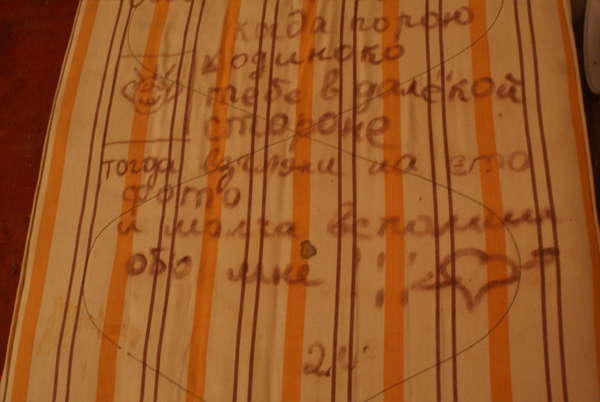 когда порою
одиноко
тебе в далёкой
стороне
тогда взгляни на ето
фото
и молча вспомни
обо мне !!!